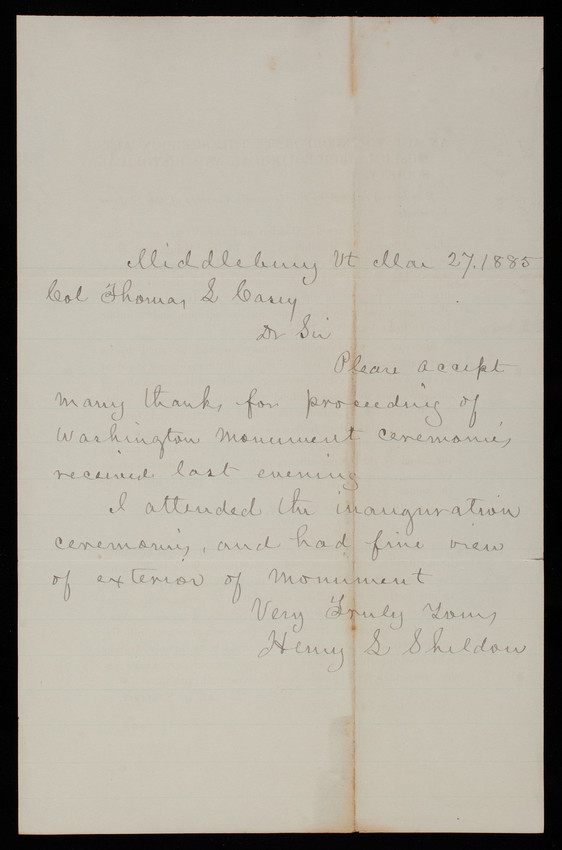 Middlebury Vt Mar 27. 1885
Col Thomas L Casey
Dr Sir
Please accept
many thanks for proceeding of
Washington Monument ceremonies
received last evening
I attended the inauguration
ceremonies, and had fine view
of exterior of Monument
Very Truly Yours
Henry L Sheldon